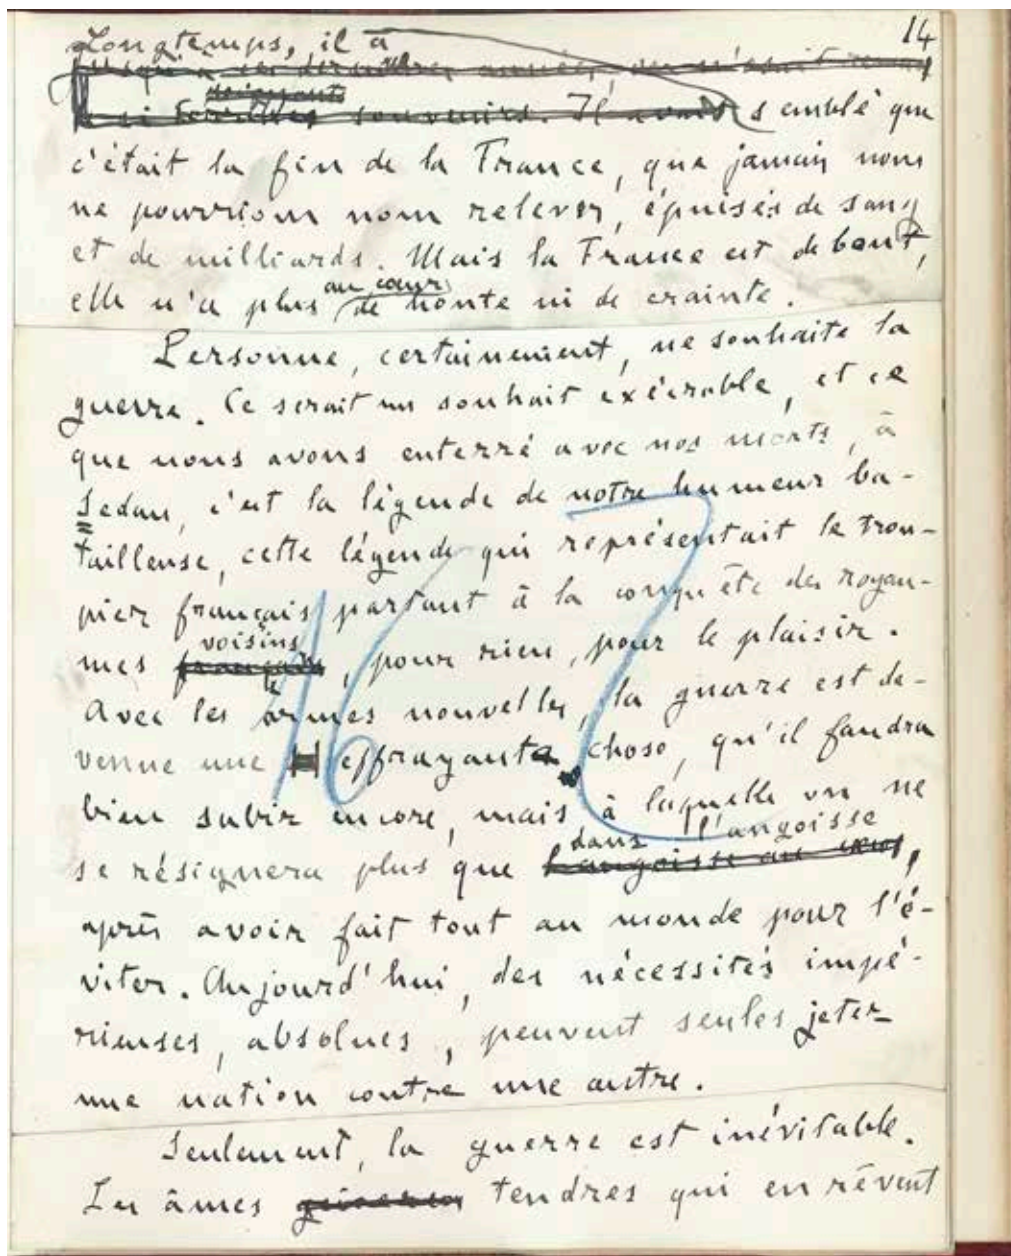 14
Longtemps, il a
Jusqu'à ces dernières années, on n'osait
si terribles souvenirs. Il avait semblé que
c'était la fin de la France, que jamais nous
ne pourrions nous relever, épuisés de sang
et de milliards. Mais la France est debout,
au cœur
elle n'a plus de honte ni de crainte.
Personne, certainement, ne souhaite la
guerre. Ce serait un souhait exécrable, et ce
que nous avons enterré avec nos morts, à
Sedan, c'est la légende de notre humeur ba-
tailleuse, cette légende qui représentait le trou-
pier français partant à la conquête des royau-
voisins
mes français, pour rien, pour le plaisir.
Avec les armes nouvelles, la guerre est de-
venue une effrayante chose, qu'il faudra
bien subir encore, mais à laquelle on ne
dans l'angoisse
se résignera plus que l'angoisse au cœur,
après avoir fait tout au monde pour l'é-
viter. Aujourd'hui, des nécessités impé-
rieuses, absolues, peuvent seules jeter
une nation contre une autre.
Seulement, la guerre est inévitable.
Les âmes tendres qui en rêvent